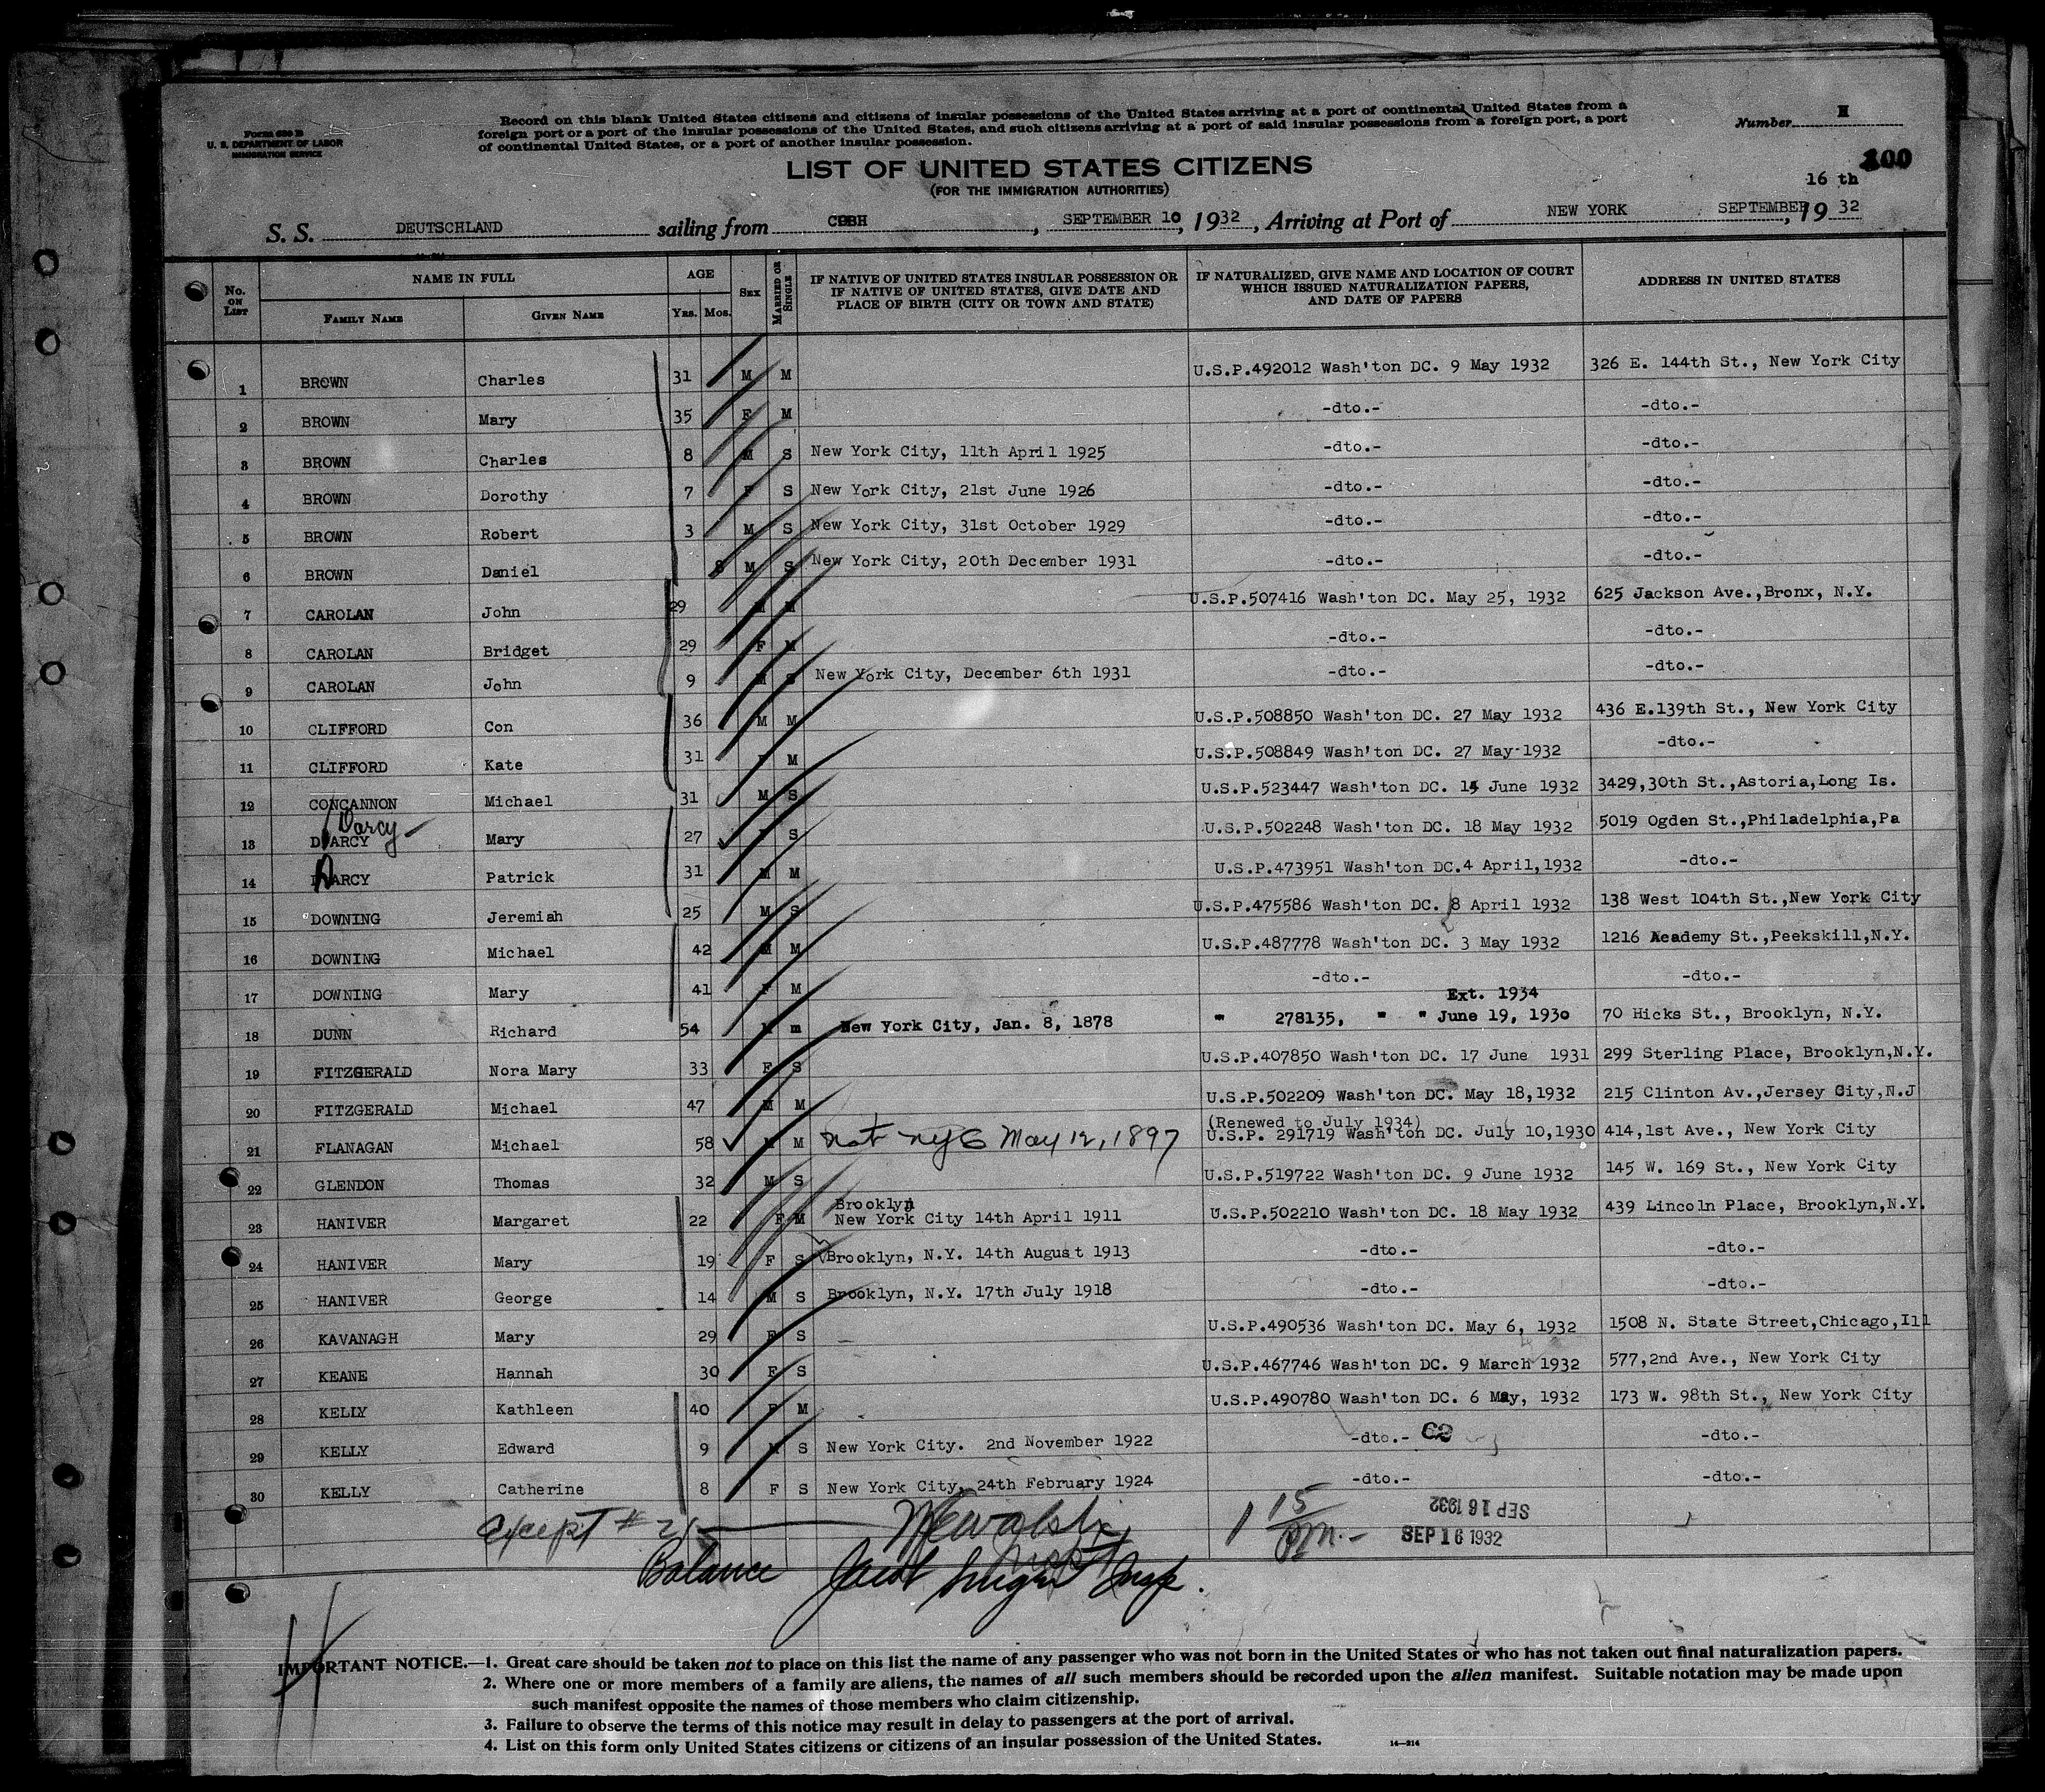 Form 630 B
U. S. DEPARTMENT OF LABOR
IMMIGRATION SERVICE
Record on this blank United States citizens and citizens of insular possessions of the United States arriving at a port of continental United States from a
foreign port or a port of the insular possessions of the United States, and such citizens arriving at a port of said insular possessions from a foreign port, a port
of continental United States, or a port of another insular possession.
Number
LIST OF UNITED STATES CITIZENS
(FOR THE IMMIGRATION AUTHORITIES)
200
16 th
S. S. DEUTSCHLAND sailing from COBH, SEPTEMBER 10, 1932, Arriving at Port of NEW YORK SEPTEMBER, 19 32
No. ON LIST NAME IN FULL AGE SEX MARRIED OR SINGLE IF NATIVE OF UNITED STATES INSULAR POSSESSION OR IF NATIVE OF UNITED STATES, GIVE DATE AND PLACE OF BIRTH (CITY OR TOWN AND STATE) IF NATURALIZED, GIVE NAME AND LOCATION OF COURT WHICH ISSUED NATURALIZATION PAPERS, AND DATE OF PAPERS ADDRESS IN UNITED STATES
FAMILY NAME GIVEN NAME YRS. MOS.
1 BROWN Charles 31 M M U.S.P.492012 Wash'ton DC. 9 May 1932 326 E. 144th St., New York City
2 BROWN Mary 35 F M -dto.- -dto.-
3 BROWN Charles 8 M S New York City, 11th April 1925 -dto.- -dto.-
4 BROWN Dorothy 7 F S New York City, 21st June 1926 -dto.- -dto.-
5 BROWN Robert 3 M S New York City, 31st October 1929 -dto.- -dto.-
6 BROWN Daniel 8 M S New York City, 20th December 1931 -dto.- -dto.-
7 CAROLAN John 29 M M U.S.P.507416 Wash'ton DC. May 25, 1932 625 Jackson Ave.,Bronx, N.Y.
8 CAROLAN Bridget 29 F M -dto.- -dto.-
9 CAROLAN John 9 M S New York City, December 6th 1931 -dto.- -dto.-
10 CLIFFORD Con 36 M M U.S.P.508850 Wash'ton DC. 27 May 1932 436 E.139th St., New York City
11 CLIFFORD Kate 31 F M U.S.P.508849 Wash'ton DC. 27 May 1932 -dto.-
12 CONCANNON Michael 31 M S U.S.P.523447 Wash'ton DC. 15 June 1932 3429,30th St.,Astoria,Long Is.
Darcy
13 D'ARCY Mary 27 F S U.S.P.502248 Wash'ton DC. 18 May 1932 5019 Ogden St.,Philadelphia,Pa
14 DARCY Patrick 31 M M U.S.P.473951 Wash'ton DC.4 April,1932 -dto.-
15 DOWNING Jeremiah 25 M S U.S.P.475586 Wash'ton DC. 8 April 1932 138 West 104th St.,New York City
16 DOWNING Michael 42 M M U.S.P.487778 Wash'ton DC. 3 May 1932 1216 Academy St.,Peekskill,N.Y.
17 DOWNING Mary 41 F M -dto.- -dto.-
Ext. 1934
18 DUNN Richard 54 M m New York City, Jan. 8, 1878 " 278135, " " June 19, 1930 70 Hicks St., Brooklyn, N.Y.
19 FITZGERALD Nora Mary 33 F S U.S.P.407850 Wash'ton DC. 17 June 1931 299 Sterling Place, Brooklyn,N.Y.
20 FITZGERALD Michael 47 M M U.S.P.502209 Wash'ton DC. May 18,1932 215 Clinton Av.,Jersey City,N.J
(Renewed to July 1934)
21 FLANAGAN Michael 58 M M nat NYC May 12, 1897 U.S.P. 291719 Wash'ton DC. July 10,1930 414,1st Ave., New York City
22 GLENDON Thomas 32 M S U.S.P.519722 Wash'ton DC. 9 June 1932 145 W. 169 St., New York City
Brooklyn
23 HANIVER Margaret 22 F M New York City 14th April 1911 U.S.P.502210 Wash'ton DC. 18 May 1932 439 Lincoln Place, Brooklyn,N.Y.
24 HANIVER Mary 19 F S Brooklyn, N.Y. 14th August 1913 -dto.- -dto.-
25 HANIVER George 14 M S Brooklyn, N.Y. 17th July 1918 -dto.- -dto.-
26 KAVANAGH Mary 29 F S U.S.P.490536 Wash'ton DC. May 6, 1932 1508 N. State Street,Chicago,Ill
27 KEANE Hannah 30 F S U.S.P.467746 Wash'ton DC. 9 March 1932 577,2nd Ave., New York City
28 KELLY Kathleen 40 F M U.S.P.490780 Wash'ton DC. 6 May, 1932 173 W. 98th St., New York City
29 KELLY Edward 9 M S New York City. 2nd November 1922 -dto.- -dto.-
30 KELLY Catherine 8 F S New York City, 24th February 1924 -dto.- -dto.-
Except # 21 1 15 PM.- SEP 16 1932
SEP 16 1932
Balance Insp.
IMPORTANT NOTICE.—1. Great care should be taken not to place on this list the name of any passenger who was not born in the United States or who has not taken out final naturalization papers.
2. Where one or more members of a family are aliens, the names of all such members should be recorded upon the alien manifest. Suitable notation may be made upon
such manifest opposite the names of those members who claim citizenship.
3. Failure to observe the terms of this notice may result in delay to passengers at the port of arrival.
4. List on this form only United States citizens or citizens of an insular possession of the United States.
14—214